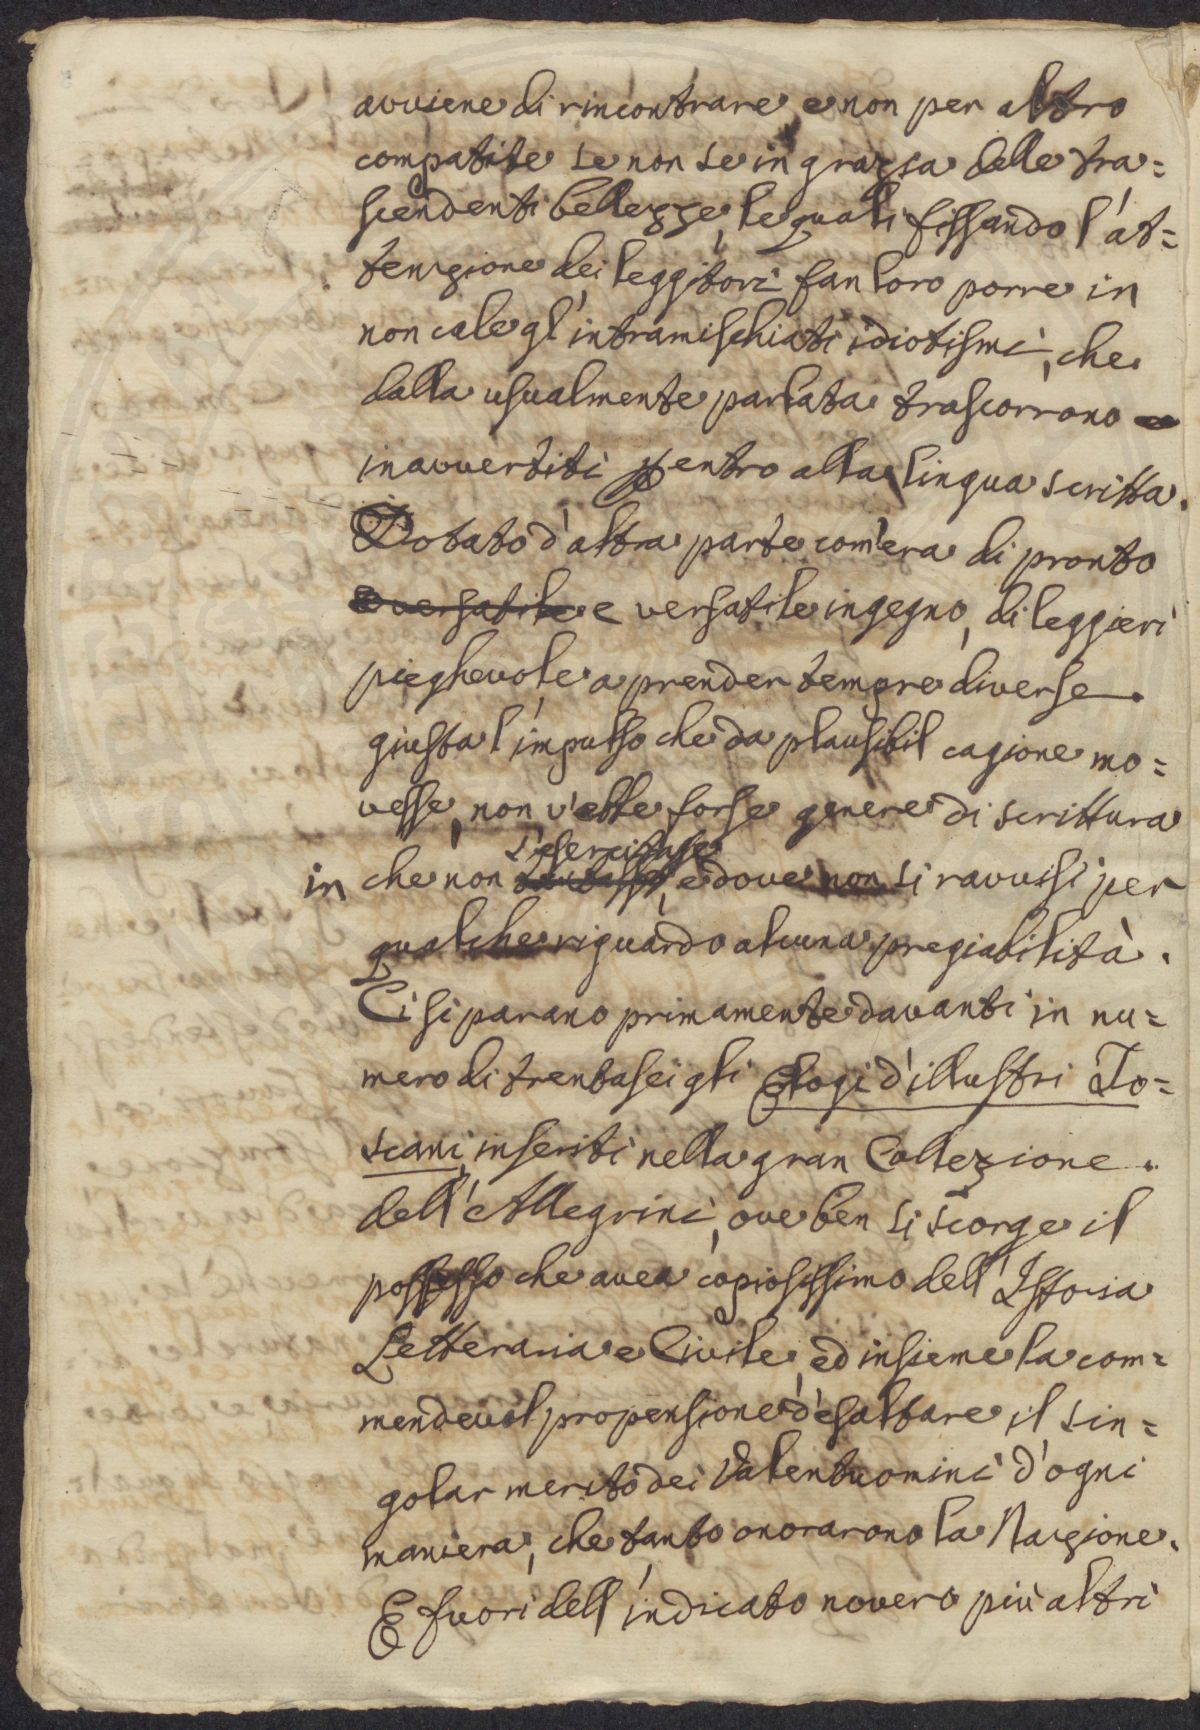 avviene di rincontrare, e non per altro
compatite se non se in grazia delle tra=
scendenti bellezze, le quali fissando l'at=
tenzione dei leggitori fan loro porre in
non cale gl'intramischiati idiotismi, che
dalla usualmente parlata trascorrono
inavvertiti entro alla lingua scritta.
Dotato d'altra parte com'era di pronto
e versatile e versatile ingegno, di leggieri
pieghevole a prender tempre diverse
giusta l'impulso che da plausibil cagione mo=
vesse, non v'ebbe forse genere di scrittura
s'esercitasse
in che non , e dove non si ravvisi per
qualche riguardo alcuna pregiabilità.
Ci si parano primamente davanti in nu=
mero di trentasei gli Elogi d'illustri To=
scani, inseriti nella gran Collezione
dell'Allegrini, ove ben si scorge il
possesso che avea copiosissimo dell'Istoria
Letteraria e Civile, ed insieme la com=
mendevol propensione d'esaltare il sin=
golar merito dei Valentuomini d'ogni
maniera, che tanto onorarono la Nazione.
E fuori dell'indicato novero più altri